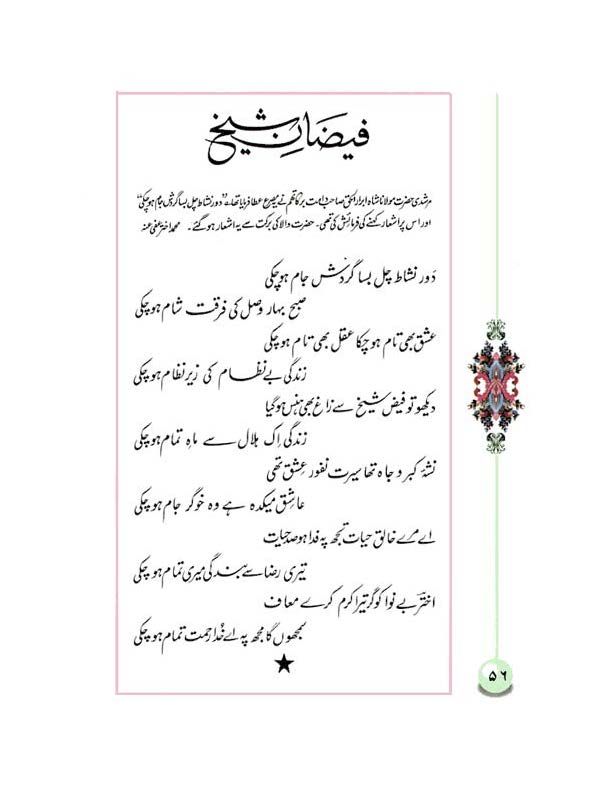 فیضانِ شیخ
مرشدی حضرت مولانا شاہ ابرار الحق صاحب دامت برکاتہم نے یہ مصرع عطا فرمایا تھا ۔ "دورِ نشاط چل بسا گردشِ جام ہو چکی"
اور اس پر اشعار کہنے کی فرمائش کی تھی۔ حضرت والا کی برکت سے یہ اشعار ہو گئے۔ محمد اختر عفی عنہ
دَورِ نشاط چل بسا گردشِ جام ہو چکی
صبح بہارِ وصل کی فرقت شام ہو چکی
عشق بھی تام ہو چکا عقل بھی تام ہو چکی
زندگی بے نظام کی زیرِ نظام ہو چکی
دیکھو تو فیضِ شیخ سے زاغ بھی ہنس ہو گیا
زندگی اِک ہلال سے ماہِ تمام ہو چکی
نشۂ کبر و جاہ تھا سیرت نفورِ عشق تھی
عاشقِ میکدہ ہے وہ خوگرِ جام ہو چکی
اے مرے خالقِ حیات تجھ پہ فدا ہو صد حیات
تیری رضا سے بندگی میری تمام ہو چکی
اخترؔ بے نوا کو گر تیرا کرم کرے معاف
سمجھوں گا مجھ پہ اے خُدا رحمت تمام ہو چکی
۵۶